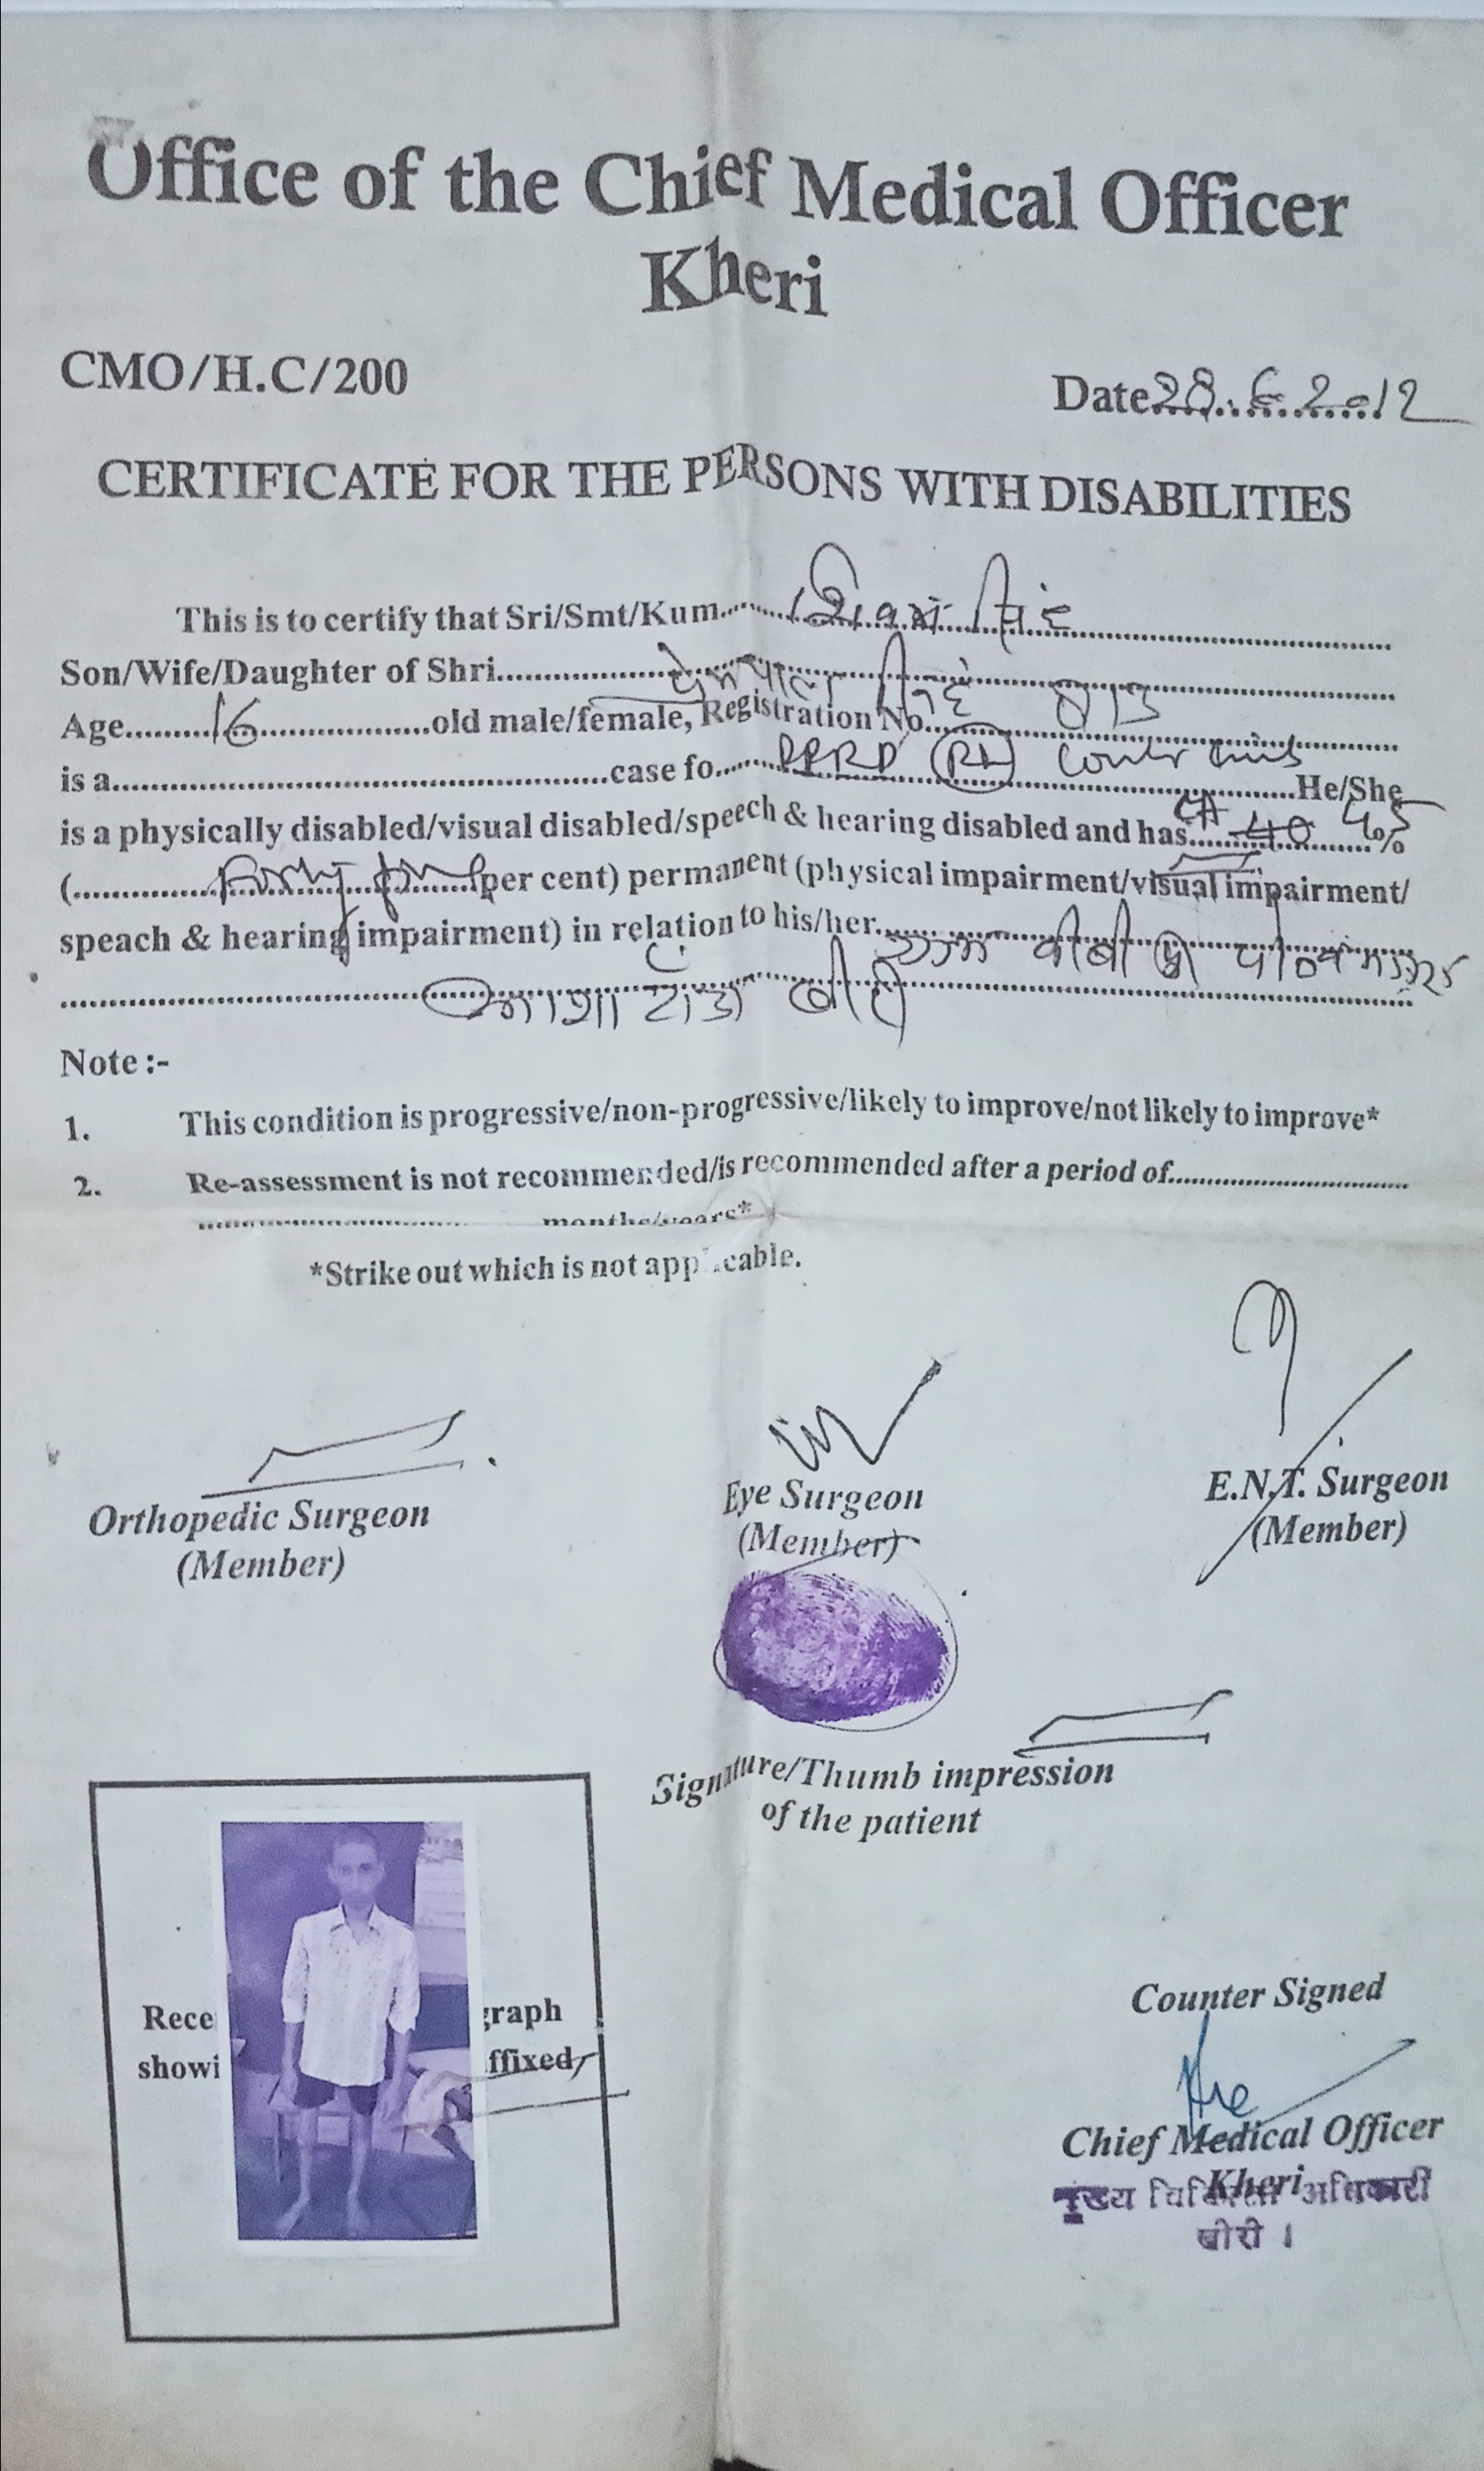 Office of the Chief Medical Officer
Kheri
CMO/H.C/200
Date 28.6.2012
CERTIFICATE FOR THE PERSONS WITH DISABILITIES
This is to certify that Sri/Smt/Kum............ सिंह
Son/Wife/Daughter of Shri............ प्रेमपाल सिंह
Age 16 old male/female, Registration No.
is a............case fo...... PPRP (RL)
He/She
is a physically disabled/visual disabled/speech & hearing disabled and has...... 40 45%
(............per cent) permanent (physical impairment/visual impairment/
speach & hearing impairment) in relation to his/her............
Note :-
1. This condition is progressive/non-progressive/likely to improve/not likely to improve*
2. Re-assessment is not recommended/is recommended after a period of............
............months/years*
*Strike out which is not applicable.
Orthopedic Surgeon
(Member)
Eye Surgeon
(Member)
E.N.T. Surgeon
(Member)
Signature/Thumb impression
of the patient
Rece graph
showi ffixed
Counter Signed
Chief Medical Officer
Kheri
मुख्य चिकित्सा अधिकारी
खीरी ।